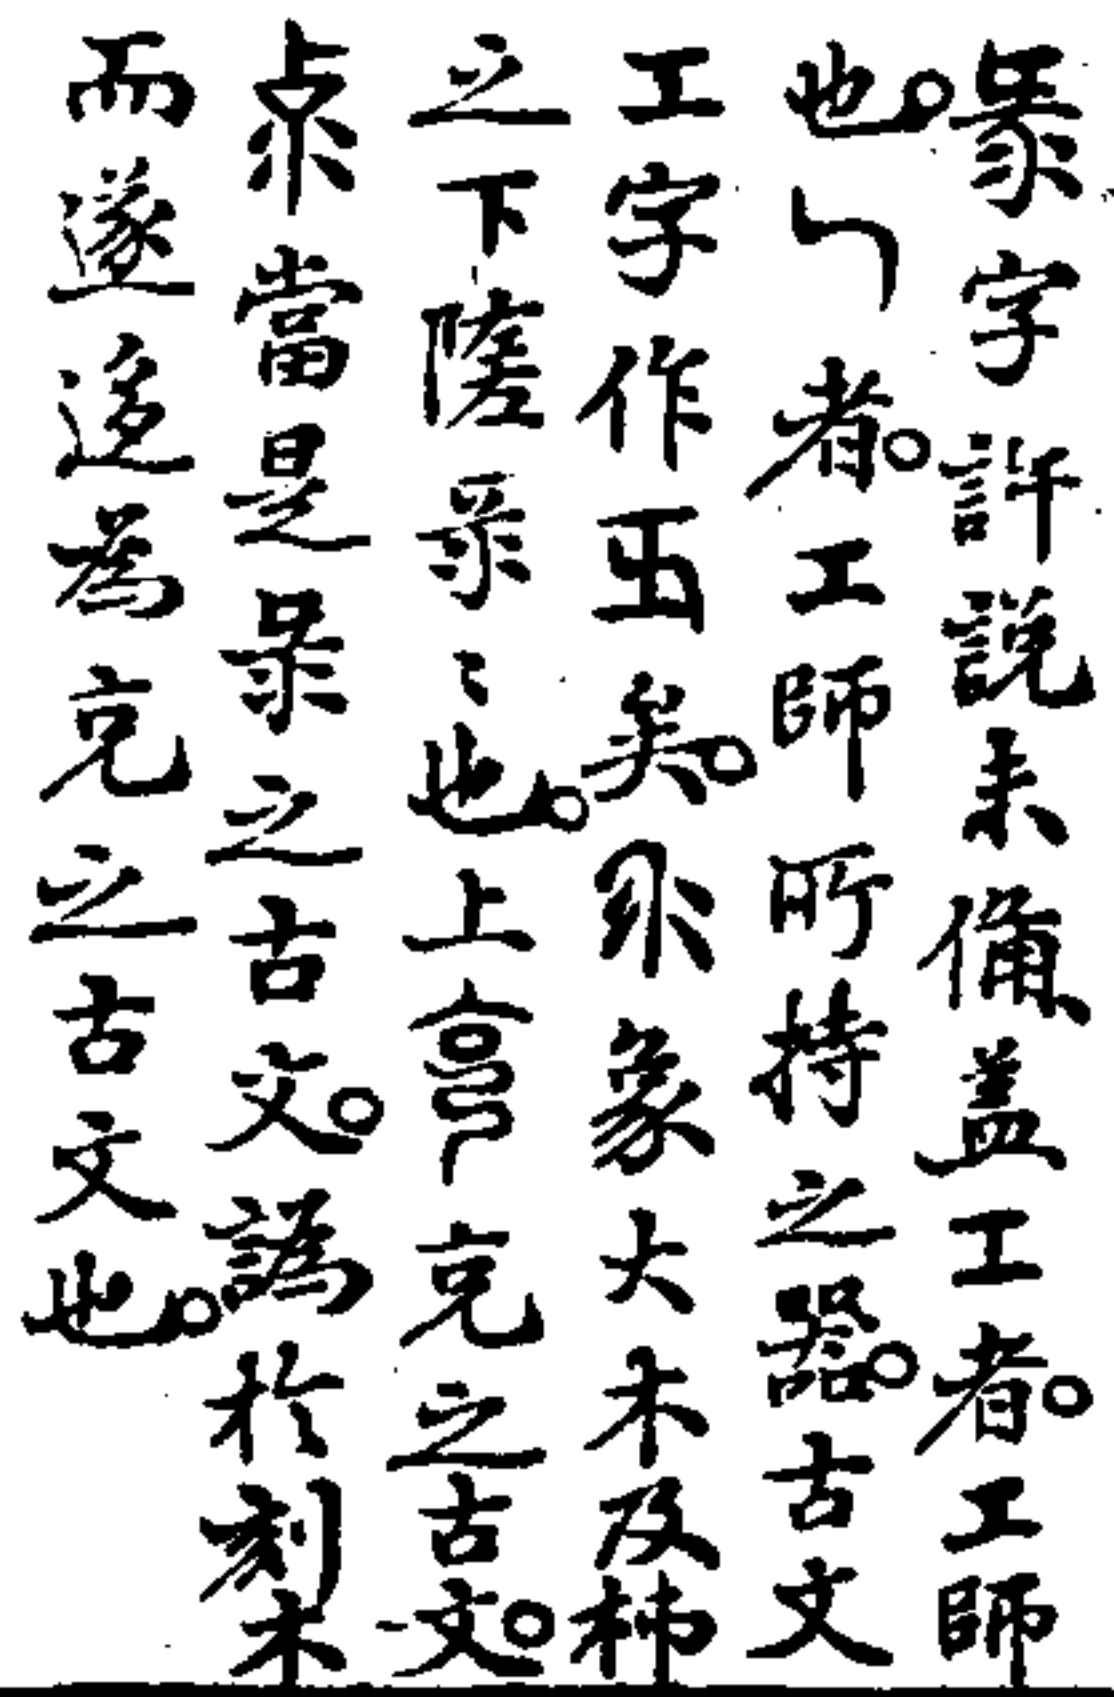 彔字許說未備盖工者工師
也㇆者工師所持之器古文
工字作𢒄矣氺象大木及柿
之下隓录〻也上亯克之古文
𠅏當是彔之古文譌於刻木
而遂迻為克之古文也